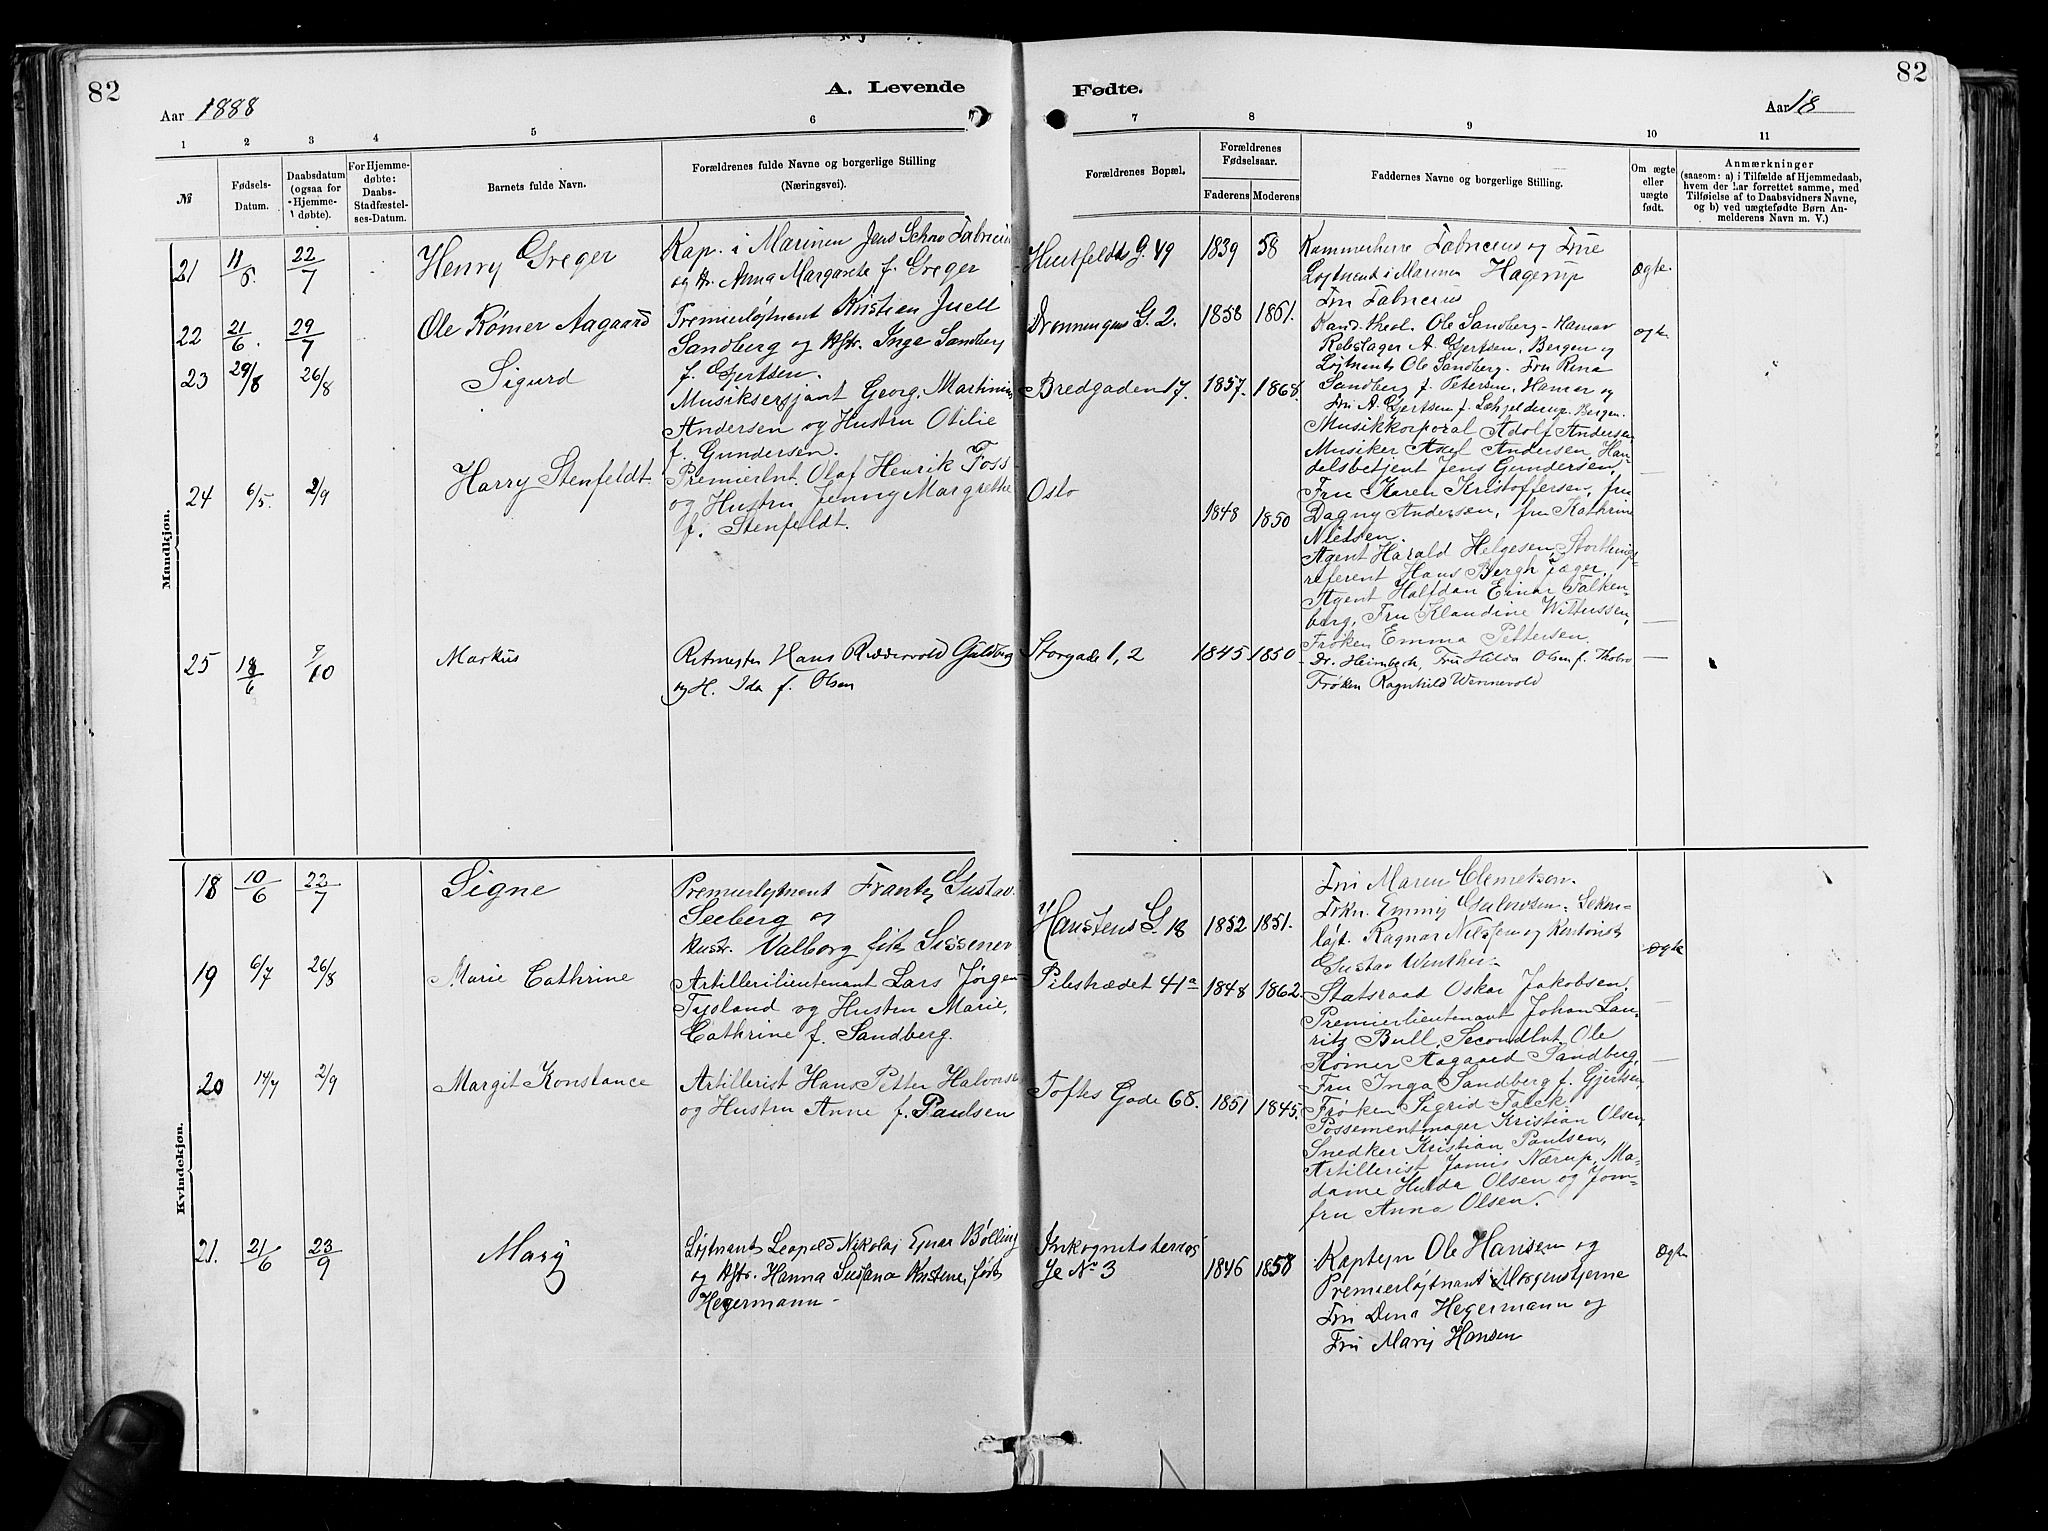 82
A. Levende
Fødte.
82
Aar 1888
Aar 18
1 2 3 4 5 6 7 8 9 10 11
№
Fødsels-Datum.
Daabsdatum (ogsaa for Hjemmedøbte).
For Hjemmedøbte: Daabs-Stadfæstelses-Datum.
Barnets fulde Navn.
Forældrenes fulde Navne og borgerlige Stilling (Næringsvei).
Forældrenes Bopæl,
Forældrenes Fødselsaar.
Faderens Moderens
Faddernes Navne og borgerlige Stilling.
Om ægte eller uægte født.
Anmærkninger
(saasom: a) i Tilfælde af Hjemmedaab,
hvem der har forrettet samme, med
Tilføielse af to Daabsvidners Navne,
og b) ved uægtefødte Børn An-
melderens Navn m. V.)
Mandkjøn.
21 11/5. 22/7 Henry Greger
Kap. i Marinen Jens Schow Fabricius
og H. Anna Margareta f. Greger
Huitfeldts G. 49 1839 58
Kammerherre Fabricius og Frue
Løjtnant i Marinen Hagerup
Fru Fabricius
Ægte.
22 21/6. 29/7 Ole Rømer Aagaard
Premierløjtnant Kristian Juell
Sandberg og Hstr. Inga Sandberg
f. Gjertsen.
Dronningens G. 2. 1858 1861.
Kand. theol. Ole Sandberg - Hamar
Rebslager A. Gjertsen, Bergen og
Løjtnant Ole Sandberg. Fru Rina
Sandberg f. Petersen, Hamar og
Fru A. Gjertsen f. Schjelderup. Bergen.
ægte
23 29/8 26/8 Sigurd
Musiksersjant Georg. Martinius
Andersen og Hustru Otilie
f. Gundersen.
Bredgaden 17. 1857. 1868.
Musikkorporal Adolf Andersen
Musiker Axel Andersen, Han-
delsbetjent Jens Gundersen,
Fru Karen Kristoffersen, fru
Dagny Andersen, fru Kathrine
Nielsen.
—
24 6/5. 2/9 Harry Stenfeldt
Premierlnt. Olaf Henrik Foss
og Hustru Jenny Margrethe
f. Stenfeldt.
Oslo 1848 1850
Agent Harald Helgesen, Storthings-
referent Hans Bergh Jæger,
Agent Halfdan Einar Falken-
berg, Fru Klaudine Wittussen,
Frøken Emma Pettersen.
—
25 /6 9/10 Markus
Ritmester Hans Riddervold Guldberg
og H. Ida f. Olsen
Storgade 1, 2 1845 1850
Dr. Heimbeck, Fru Hilda Olsen f.
Frøken Ragnhild Wennevold
—
Kvindekjøn.
18 10/6 22/7 Signe
Premierløjtnant Frantz Gustav
Seeberg og
Hustr. Valborg født Sissener
Hansteens G. 18 1852 1851.
Fru Maren Clemetson.
Frkn. Emmy Gulowsen. Sekon-
løjt. Ragnar Nilssen og Kontorist
Gustav Winther.
ægte
19 6/7 26/8 Marie Cathrine
Artillerilieutenant Lars Jørgen
Tysland og Hustru Marie,
Cathrine f. Sandberg.
Pilestrædet 41a 1848 1862.
Statsraad Oskar Jakobsen,
Premierlieutenant Johan Lau-
ritz Bull, Secondlnt Ole
Rømer Aagaard Sandberg,
Fru Inga Sandberg f. Gjertsen
Frøken Sigrid Falck.
—
20 14/7 2/9 Margit Konstance
Artillerist Hans Petter Halvorsen
og Hustru Anne f. Paulsen
Toftes Gade 68. 1851 1845.
Possementmager Kristian Olsen,
Snedker Kristian Paulsen,
Artillerist Jonis Nærup, Ma-
dame Hulda Olsen og Jom-
fru Anna Olsen.
—
21. 21/6 23/9 Mary
Løjtnant Leopold Nikolaj Ejnar Bølling
og Hstr. Hanna Susana Kirstene, født
Hegermann -
Inkognitoterras
se No 3 1846 1858
Kaptejn Ole Hansen og
Premierløjtnant Morgenstjerne
Fru Dina Hegermann og
Fru Mary Hansen
Ægte